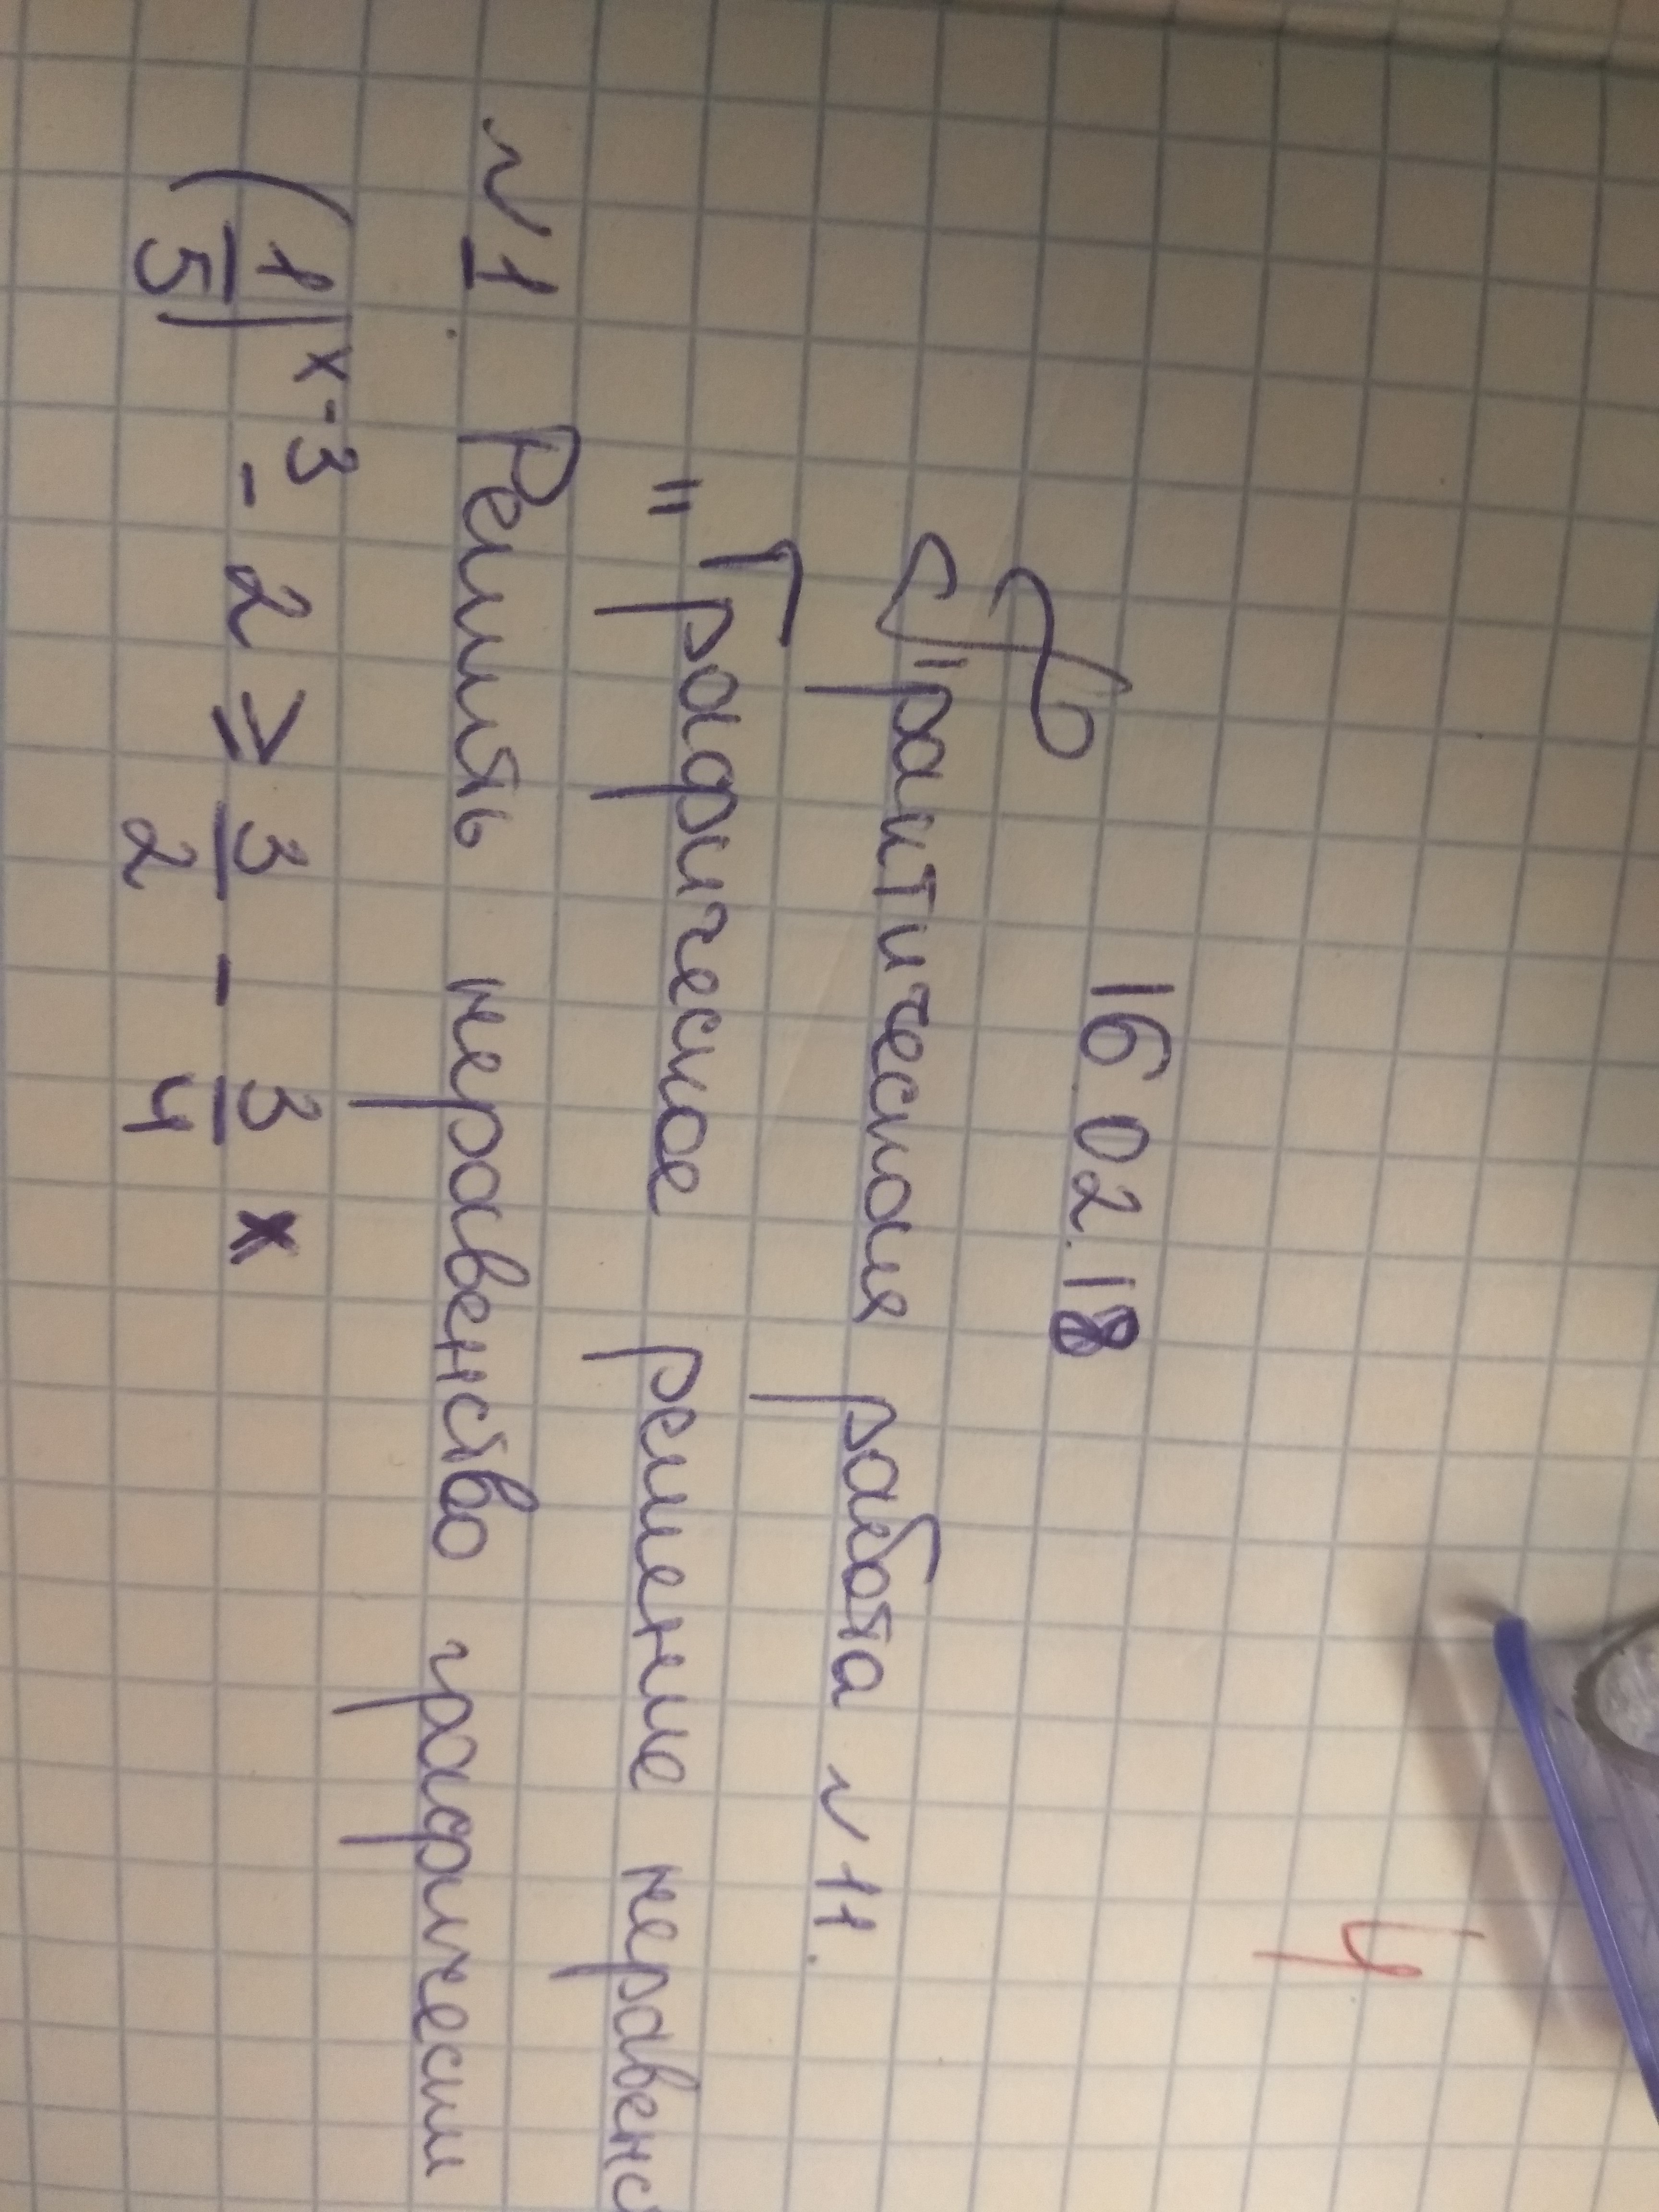 4
16.02.18
Практическая работа №11.
"Графическое решение неравенс
№1. Решить неравенство графически
(1/5)^x-3 - 2 ≥ 3/2 - 3/4 x